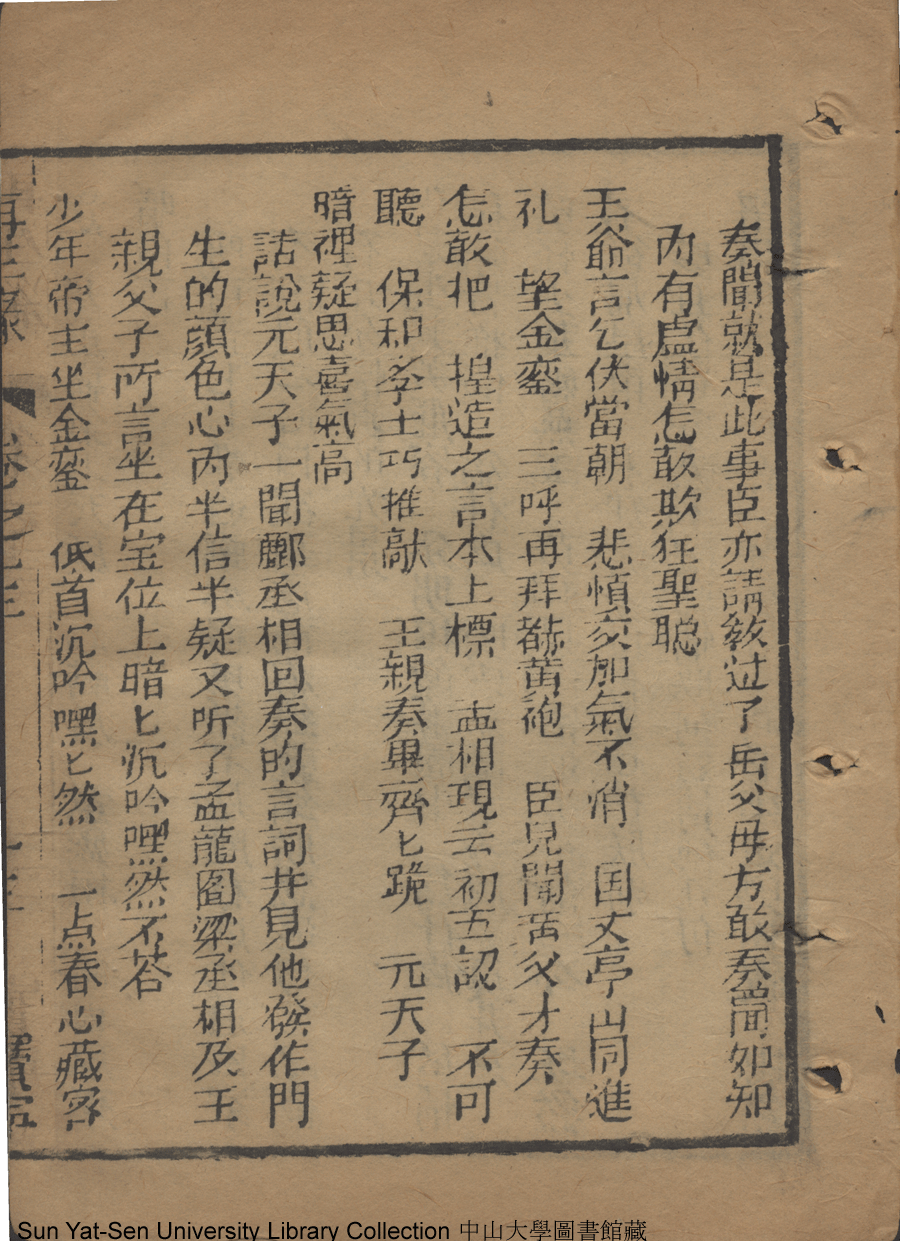 奏聞就是此事臣亦請教过了岳父毋方敢奏聞如知
内有虛情怎敢欺狂聖聡
王爺言乞伏當朝　悲憤亥加氣不消　国丈亭山同進
礼　望金鑾　三呼再拜黻黄袍　臣兒聞岳父才奏
怎敢把　揑造之言本上標　孟相現云初五認　不可
聽　保和孝士巧推敲　王親奏畢齊匕跪　元天子
暗裡疑思喜氣高
話說元天子一聞酈丞相回奏的言詞井見他發作門
生的顔色心内半信半疑又听了孟龍图梁丞相及王
親父子所言坐在宝位上暗匕沉吟嘿然不荅
少年帝主坐金鑾　低首沉吟嘿匕然　一点春心藏密
再生緣　卷之七三